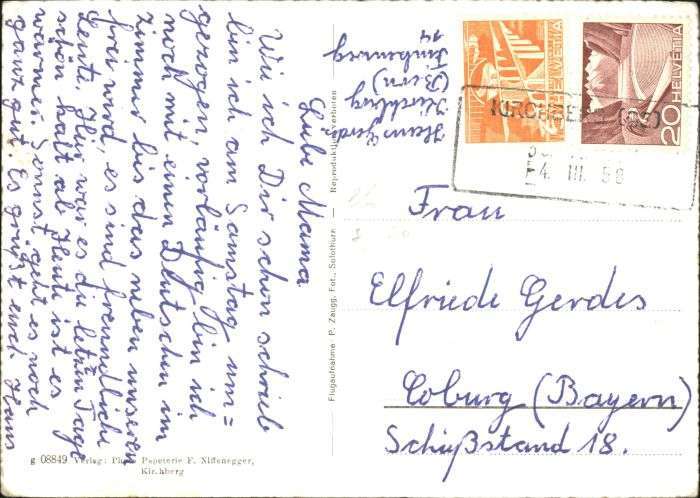 Liebe Mama
Wie ich Dir schon schrieb
bin ich am Samstag um=
gezogen, vorläufig bin ich
noch mit einen Deutschen im
Zimmer bis das neben unseren
frei wird, es sind freundliche
Leute. Hier war es die letzten Tage
schön kalt ab Heute ist es
wärmer. Sonnst geht es noch
ganz gut. Es grüßt euch Hans
Hans Gerdes
Kirchberg
(Bern)
14
HELVETIA
20 HELVETIA
KIRCHBERG (BE)
III. 58
Frau
Elfriede Gerdes
Coburg (Bayern)
Schießstand 18.
Flugaufnahme · P. Zaugg, Fot., Solothurn — Reproduktion verboten
g 08849 Verlag: Photo Papeterie F. Niffenegger,
Kirchberg